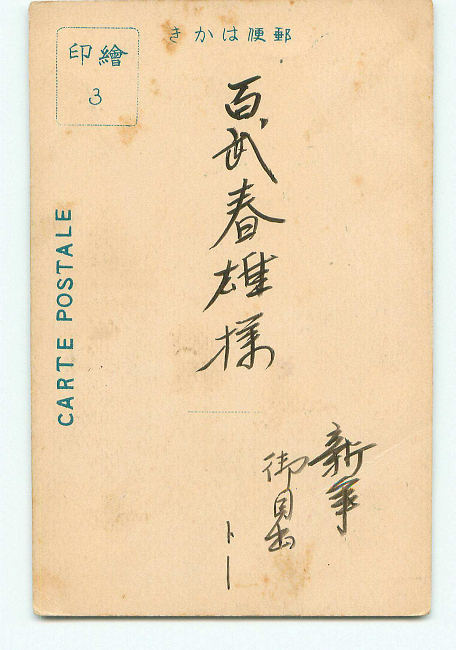 郵便はかき
繪印
3
CARTE POSTALE
百武春雄様
新年
御目出
トー